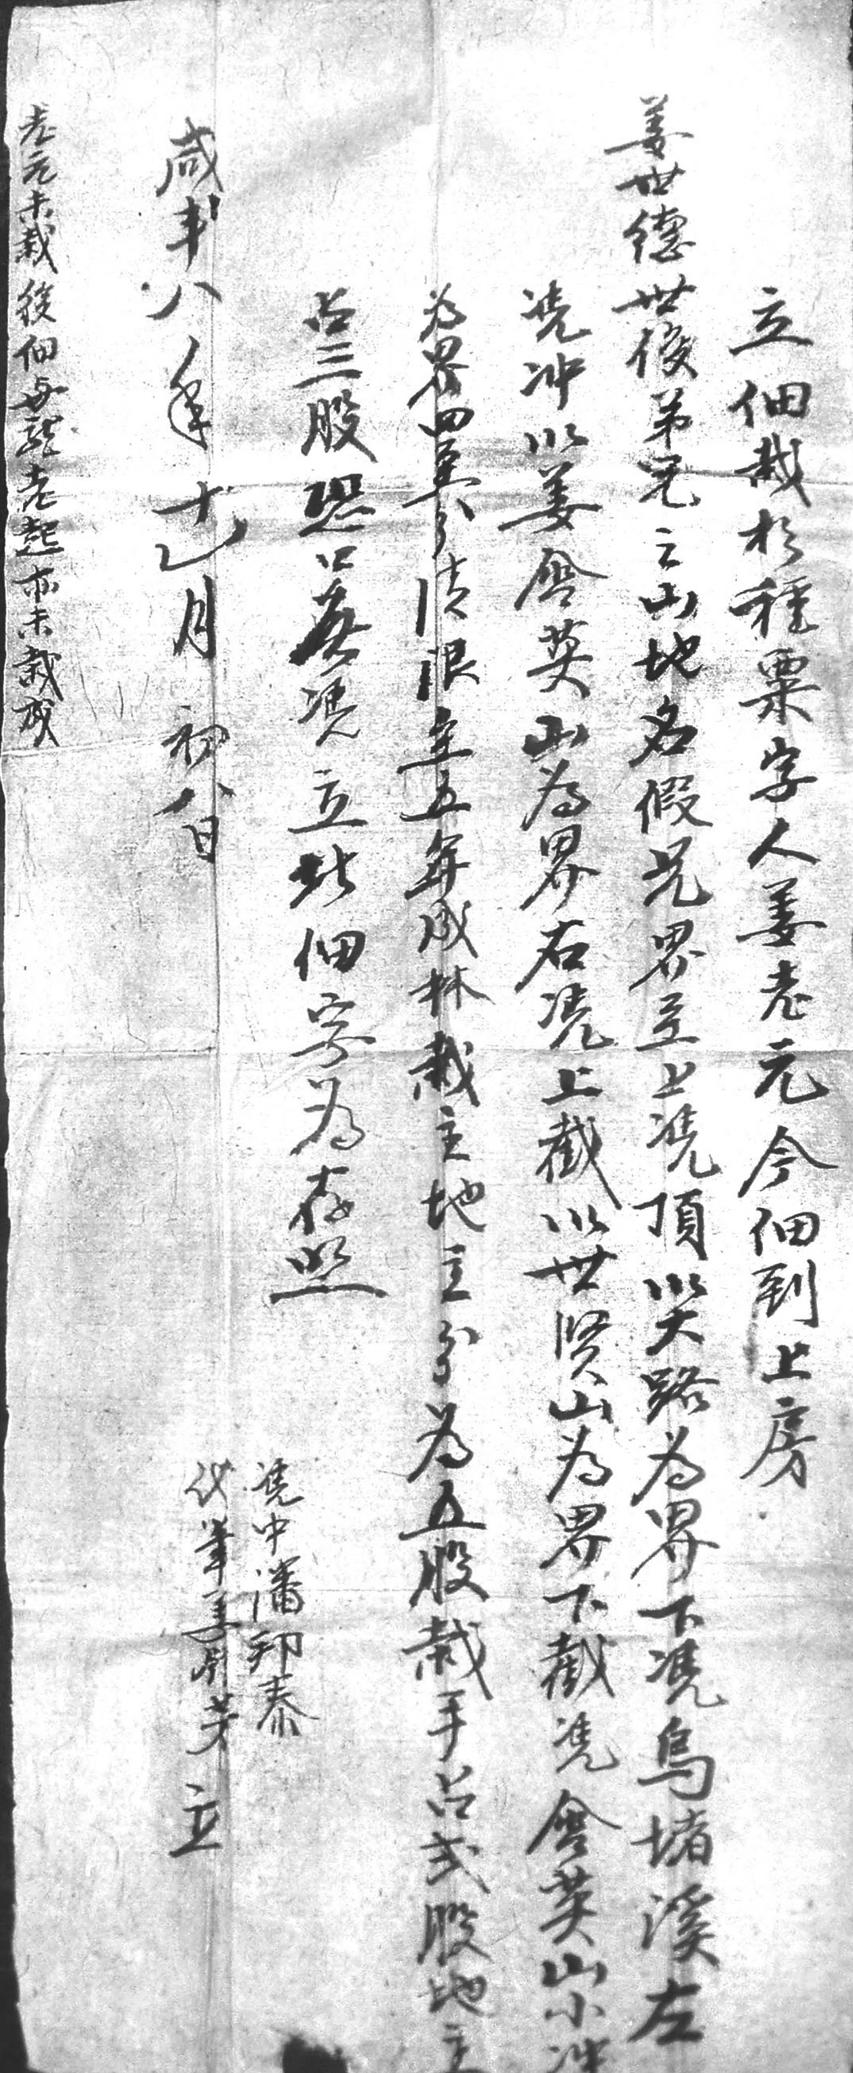 立佃栽杉種粟字人姜老元今佃到上房
姜世德世俊弟兄之山地名假兄界至上凴頂以大路為界下凴烏堵溪左
凴冲以姜含英山為界右凴上截以世賢山為界下截凴含英山小冲
為界四至分清限至五年成林栽主地主分為五股栽手占弍股地主
占三股恐口無凴立此佃字為存照
凴中潘邦泰
代筆姜 芳 立
咸丰八年十一月初八日
老元未栽後佃與龍老起亦未栽成